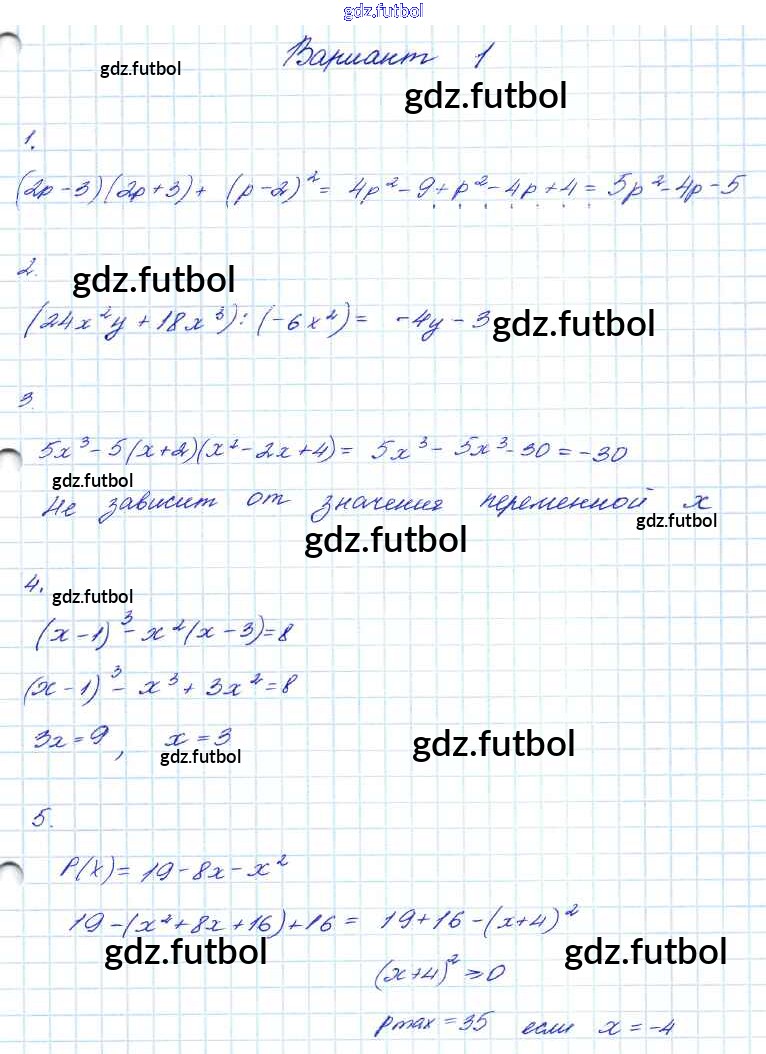 gdz.futbol
Вариант 1
gdz.futbol
gdz.futbol
1.
(2p-3)(2p+3)+ (p-2)²= 4p²-9+p²-4p+4= 5p²-4p-5
2.
gdz.futbol
(24x²y+18x³):(-6x²)= -4y-3
gdz.futbol
3.
5x³-5(x+2)(x²-2x+4)= 5x³- 5x³-30=-30
gdz.futbol
Не зависит от значения переменной x
gdz.futbol
gdz.futbol
4.
gdz.futbol
(x-1)³-x²(x-3)=8
(x-1)³- x³+ 3x²=8
3x=9, x=3
gdz.futbol
gdz.futbol
5.
P(x)= 19-8x-x²
19-(x²+8x+16)+16= 19+16-(x+4)²
gdz.futbol
gdz.futbol
(x+4)²≥0
pmax=35 если x=-4